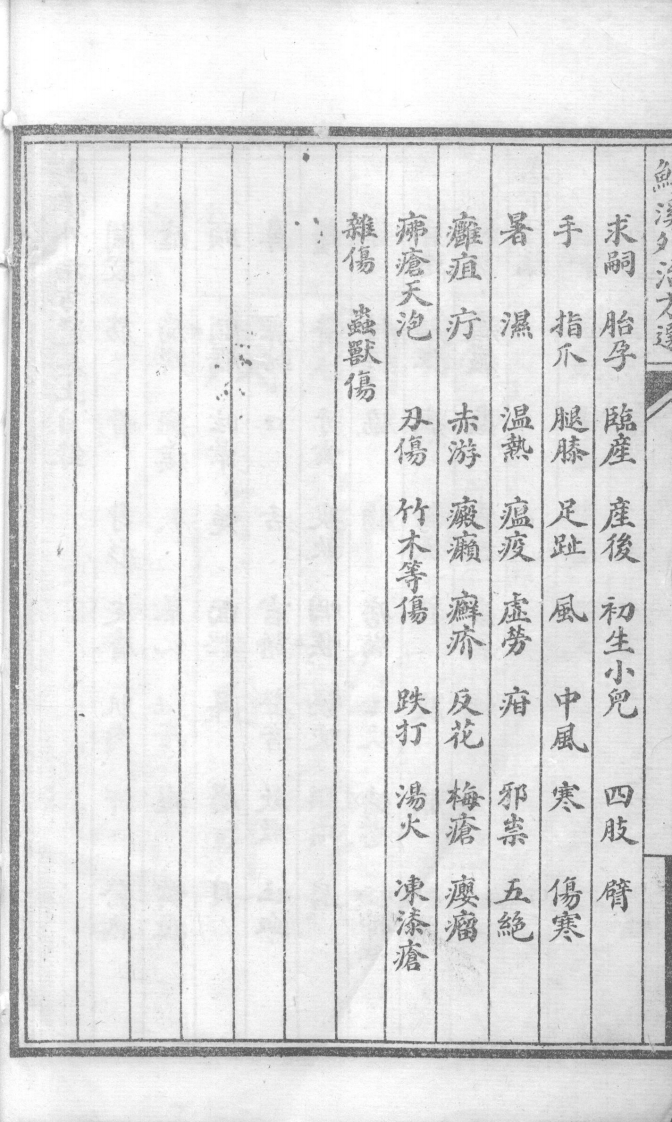 鯰溪外治方選
求嗣 胎孕 臨產 產後 初生小兒 四肢 臂
手 指爪 腿膝 足趾 風 中風 寒 傷寒
暑 濕 温熱 瘟疫 虛勞 疳 邪祟 五絕
癰疽 疔 赤游 癜癩 癬疥 反花 梅瘡 癭瘤
疿瘡天泡 刄傷 竹木等傷 跌打 湯火 凍漆瘡
雜傷 蟲獸傷